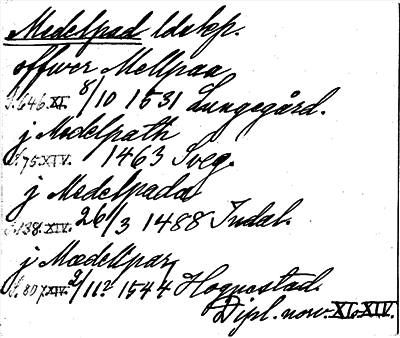 Medelpad ldskp.
offwer Mellpaa
S. 646. XI. 8/10 1531 Lungegård.
j Medelpath
S. 75. XIV. 1463 Sveg.
j Medelpada
S. 138. XIV. 26/3 1488 Indal.
j Mædelpar,
S. 80 XIV. 1544
Dipl. norv. XI. XIV.